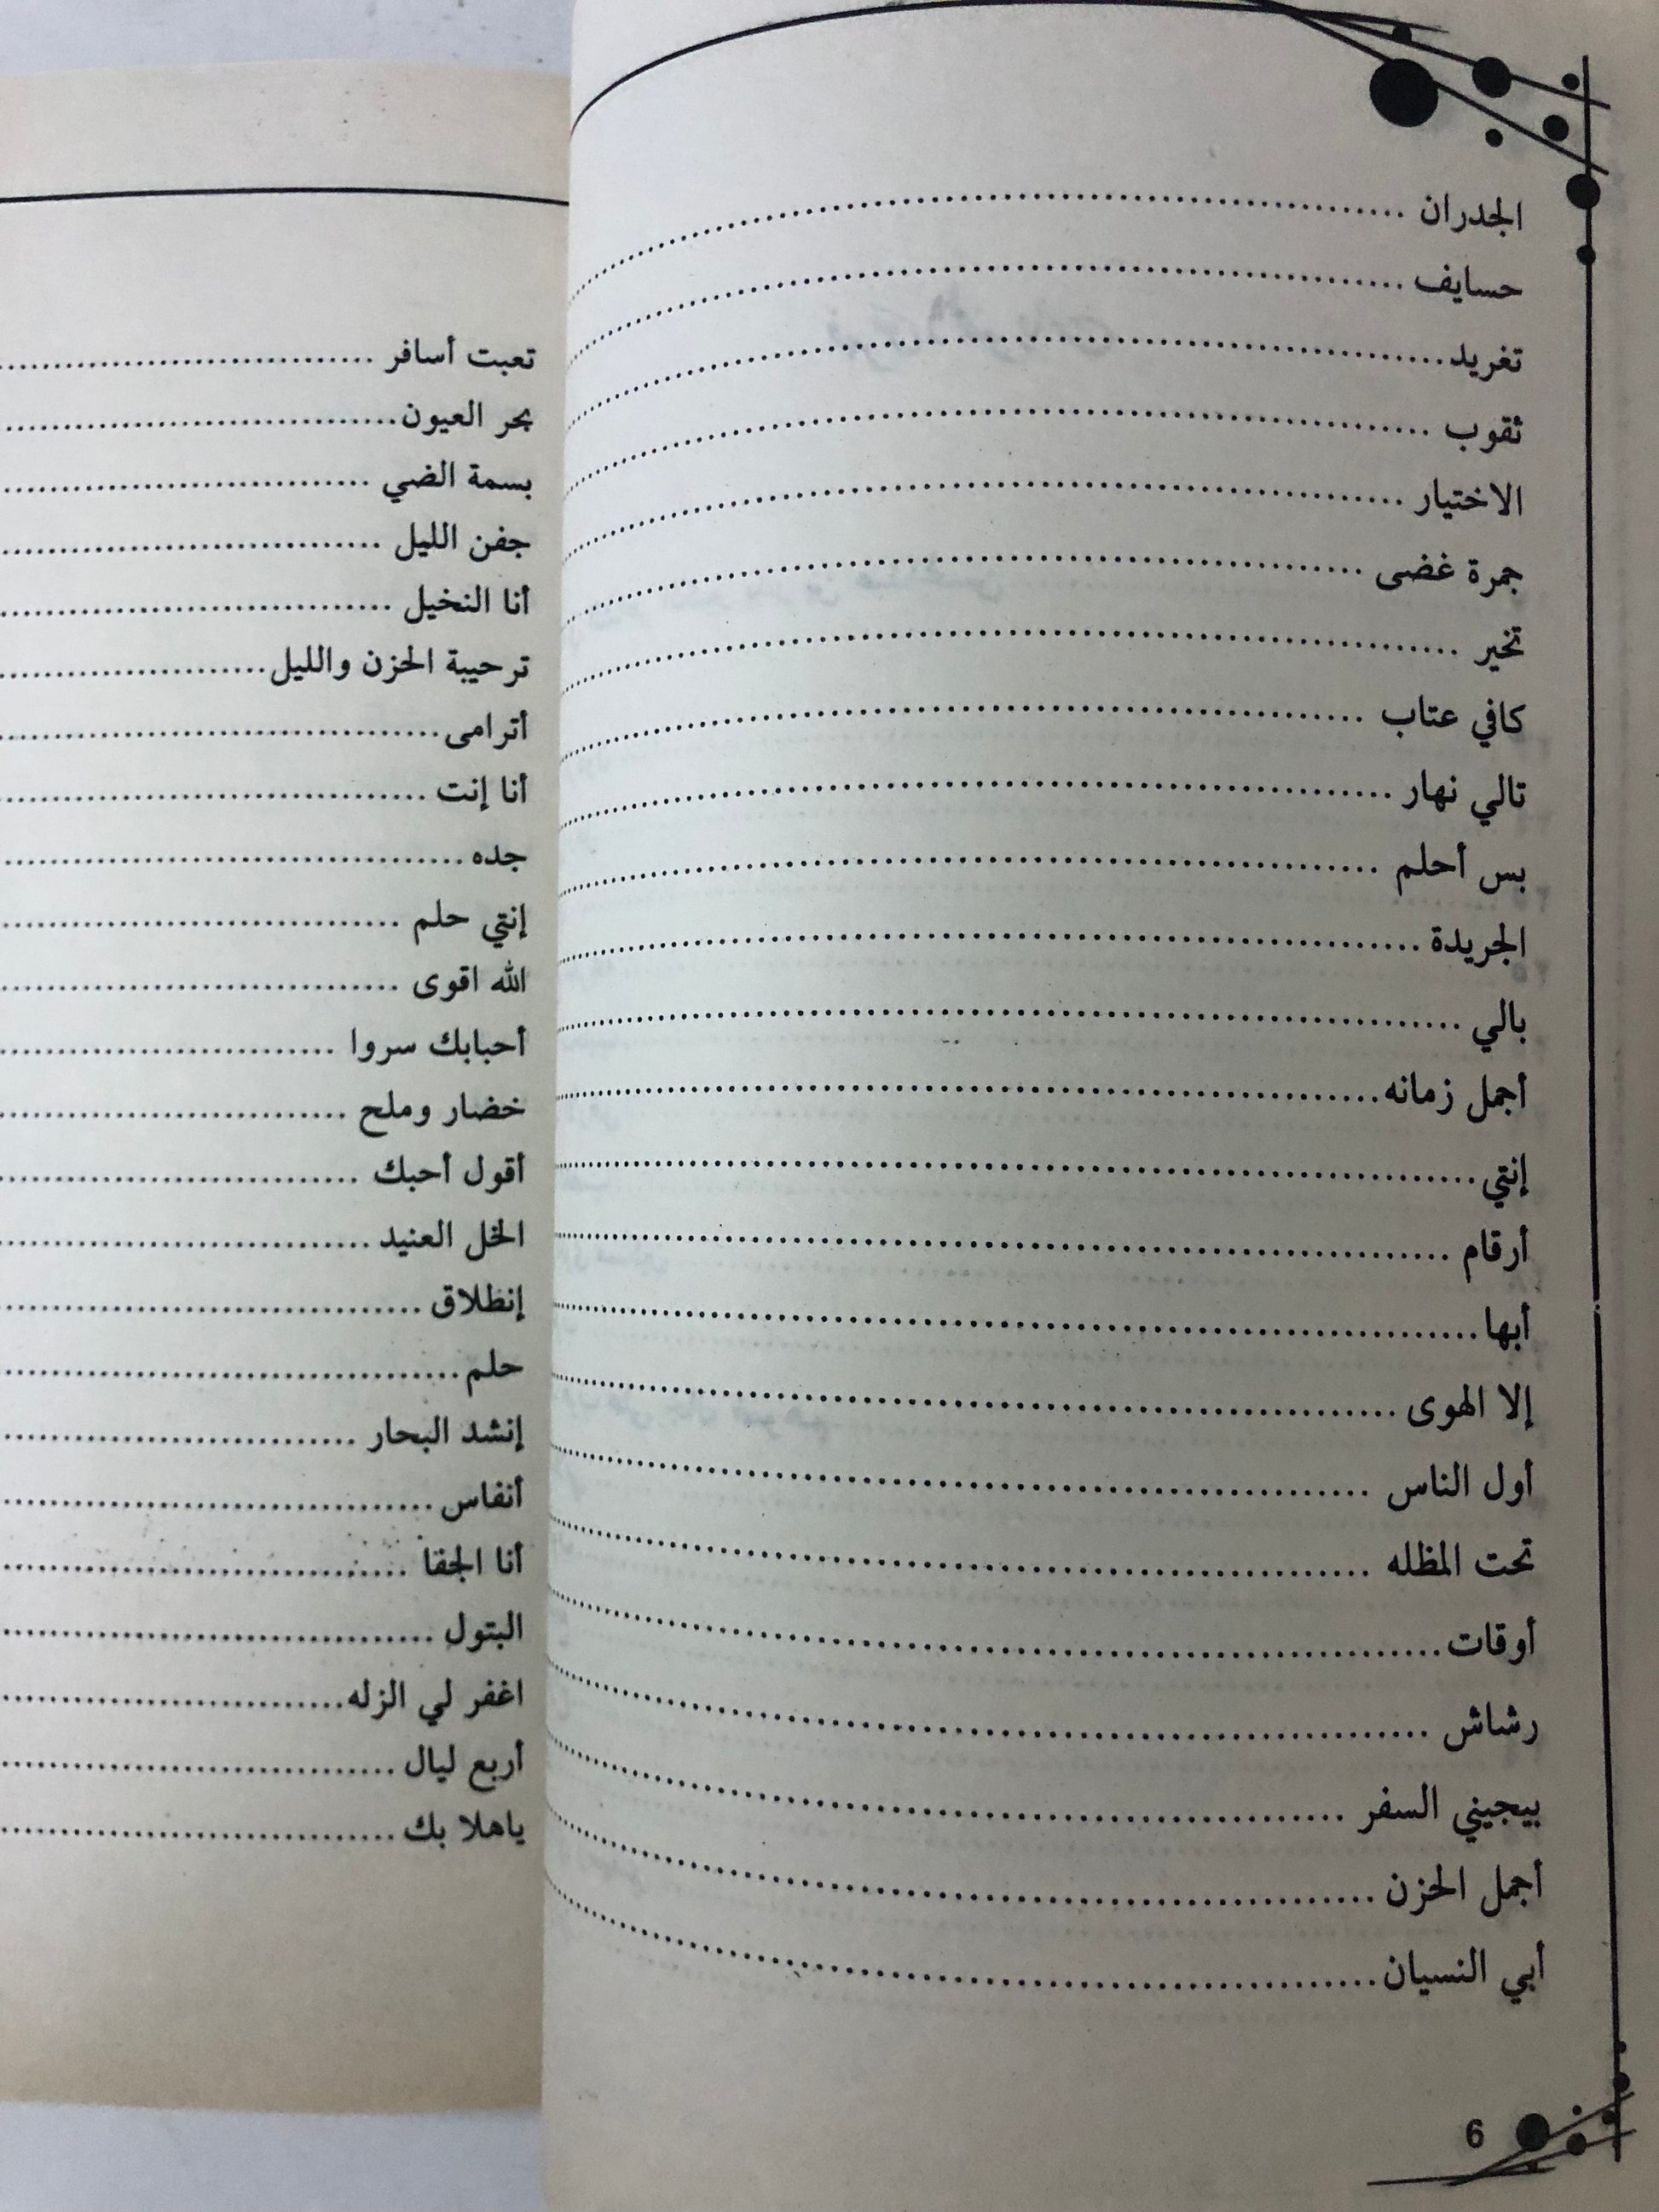 الجدران
حسايف
تغريد
ثقوب
الاختيار
جمرة غضى
تخير
كافي عتاب
تالي نهار
بس أحلم
الجريدة
بالي
أجمل زمانه
إنتي
أرقام
أبها
إلا الهوى
أول الناس
تحت المظله
أوقات
رشاش
بيجيني السفر
أجمل الحزن
أبي النسيان
6
تعبت أسافر
بحر العيون
بسمة الضي
جفن الليل
أنا النخيل
ترحيبة الحزن والليل
أترامى
أنا إنت
جده
إنتي حلم
الله اقوى
أحبابك سروا
خضار وملح
أقول أحبك
الخل العنيد
إنطلاق
حلم
إنشد البحار
أنفاس
أنا الجفا
البتول
اغفر لي الزله
أربع ليال
ياهلا بك